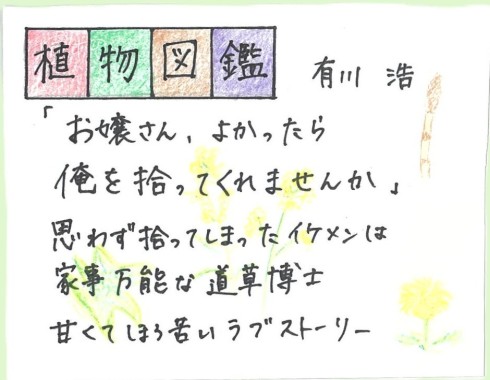 植物図鑑
有川 浩
「お嬢さん、よかったら
俺を拾ってくれませんか」
思わず拾ってしまったイケメンは
家事万能な道草博士
甘くてほろ苦いラブストーリー